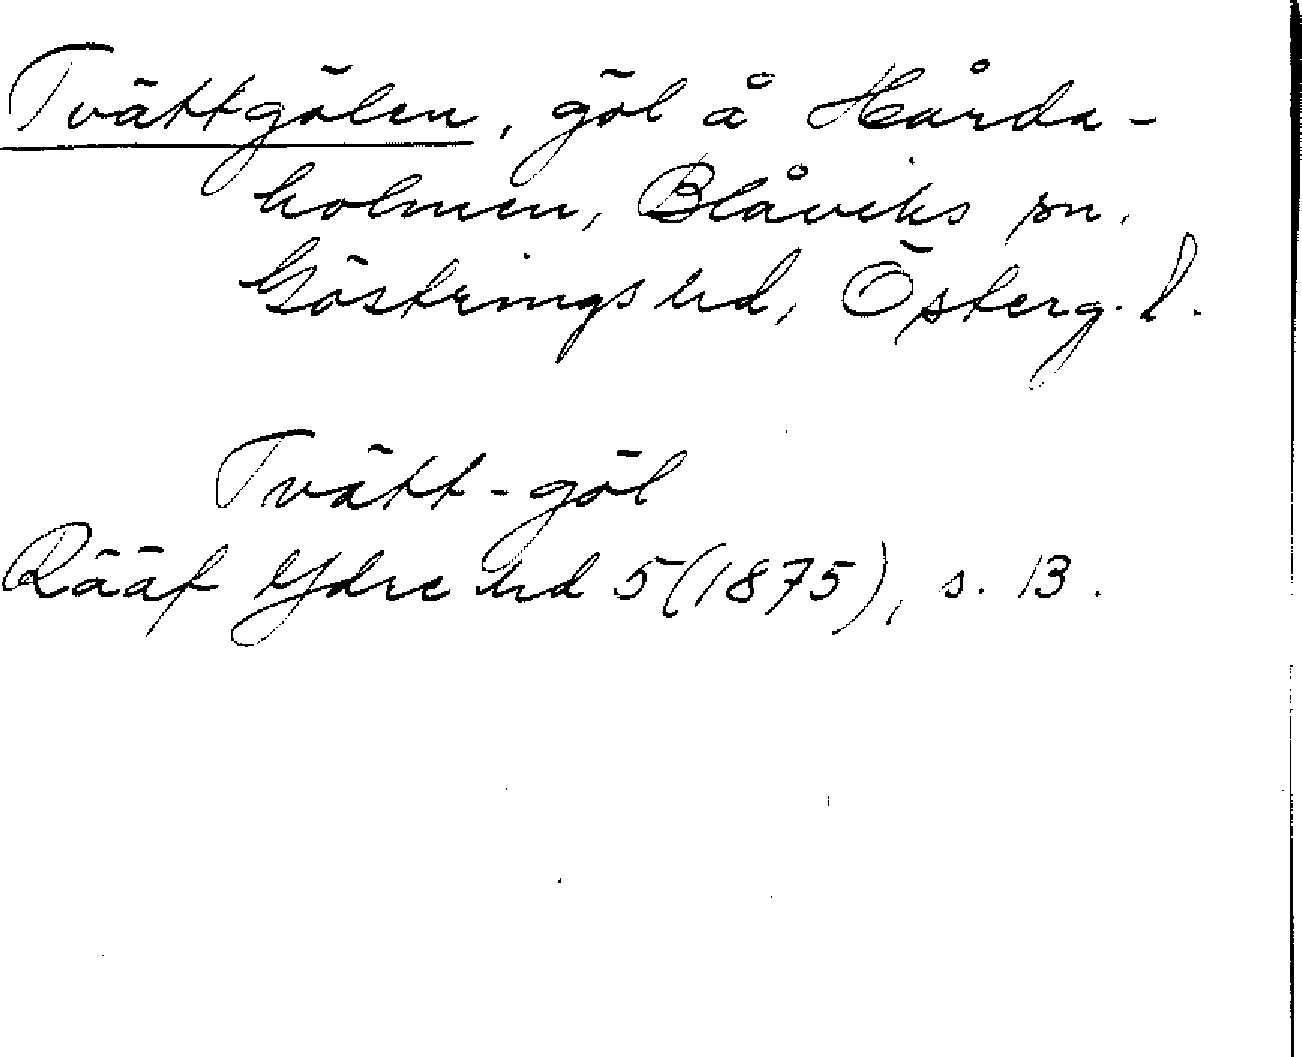 Tvättgölen, göl å Hårda-
holmen, Blåviks sn.
Göstrings hd, Österg. l.
Tvätt-göl
Rääf Ydre hd 5 (1875), s. 13.